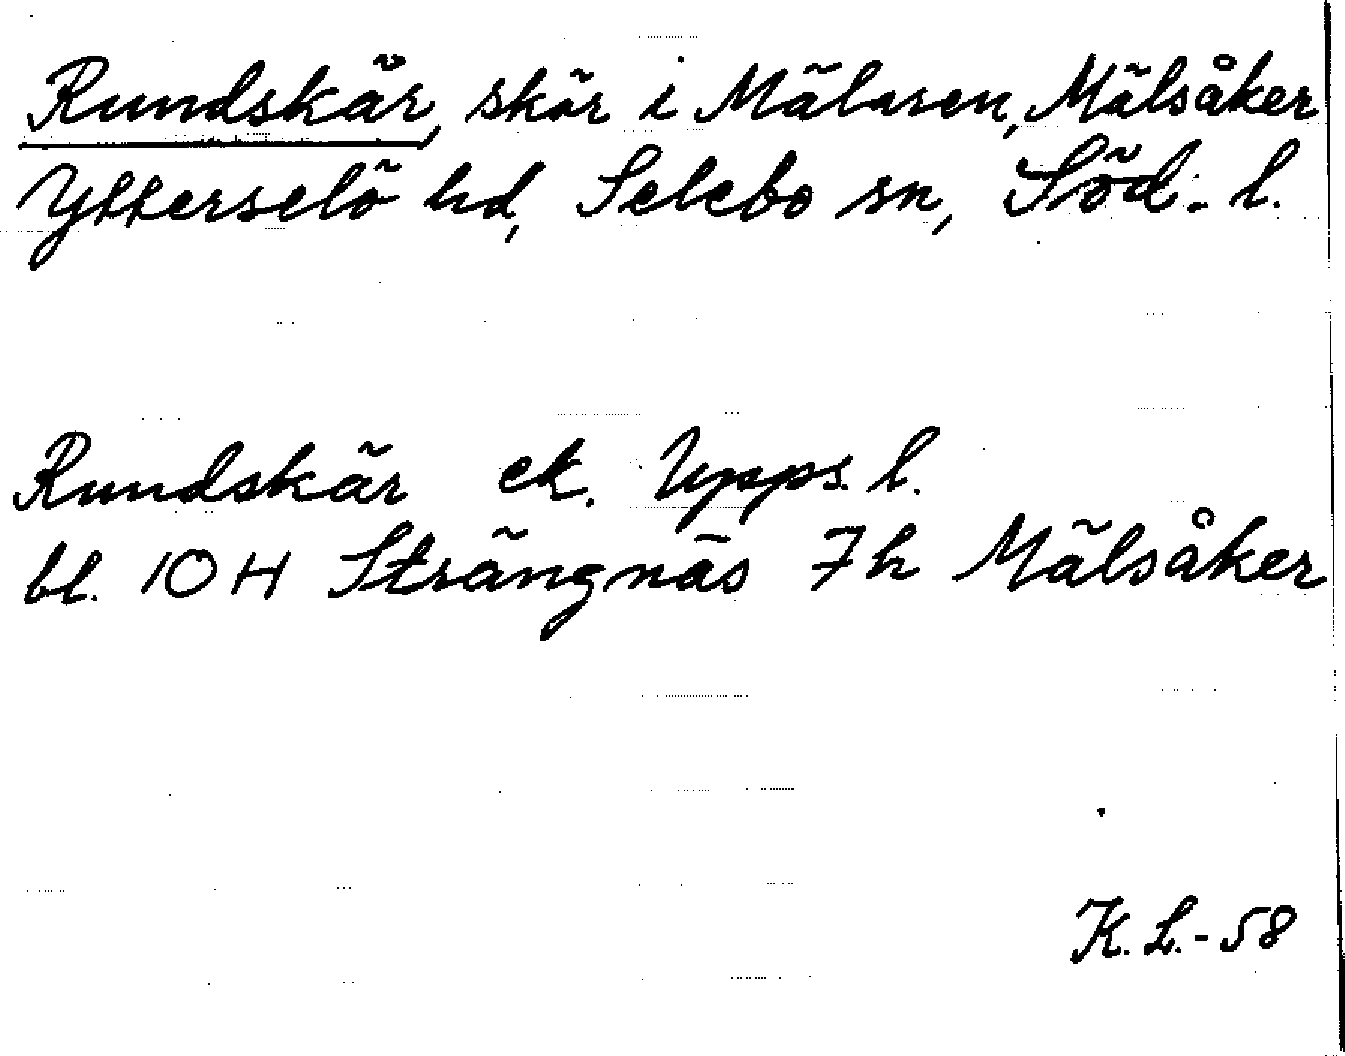 Rundskär, skär i Mälaren, Mälsåker
Ytterselö hd, Selebo sn, Söd. l.
Rundskär ek. Upps. l.
bl. 10 H Strängnäs 7h Mälsåker
K. L. - 58